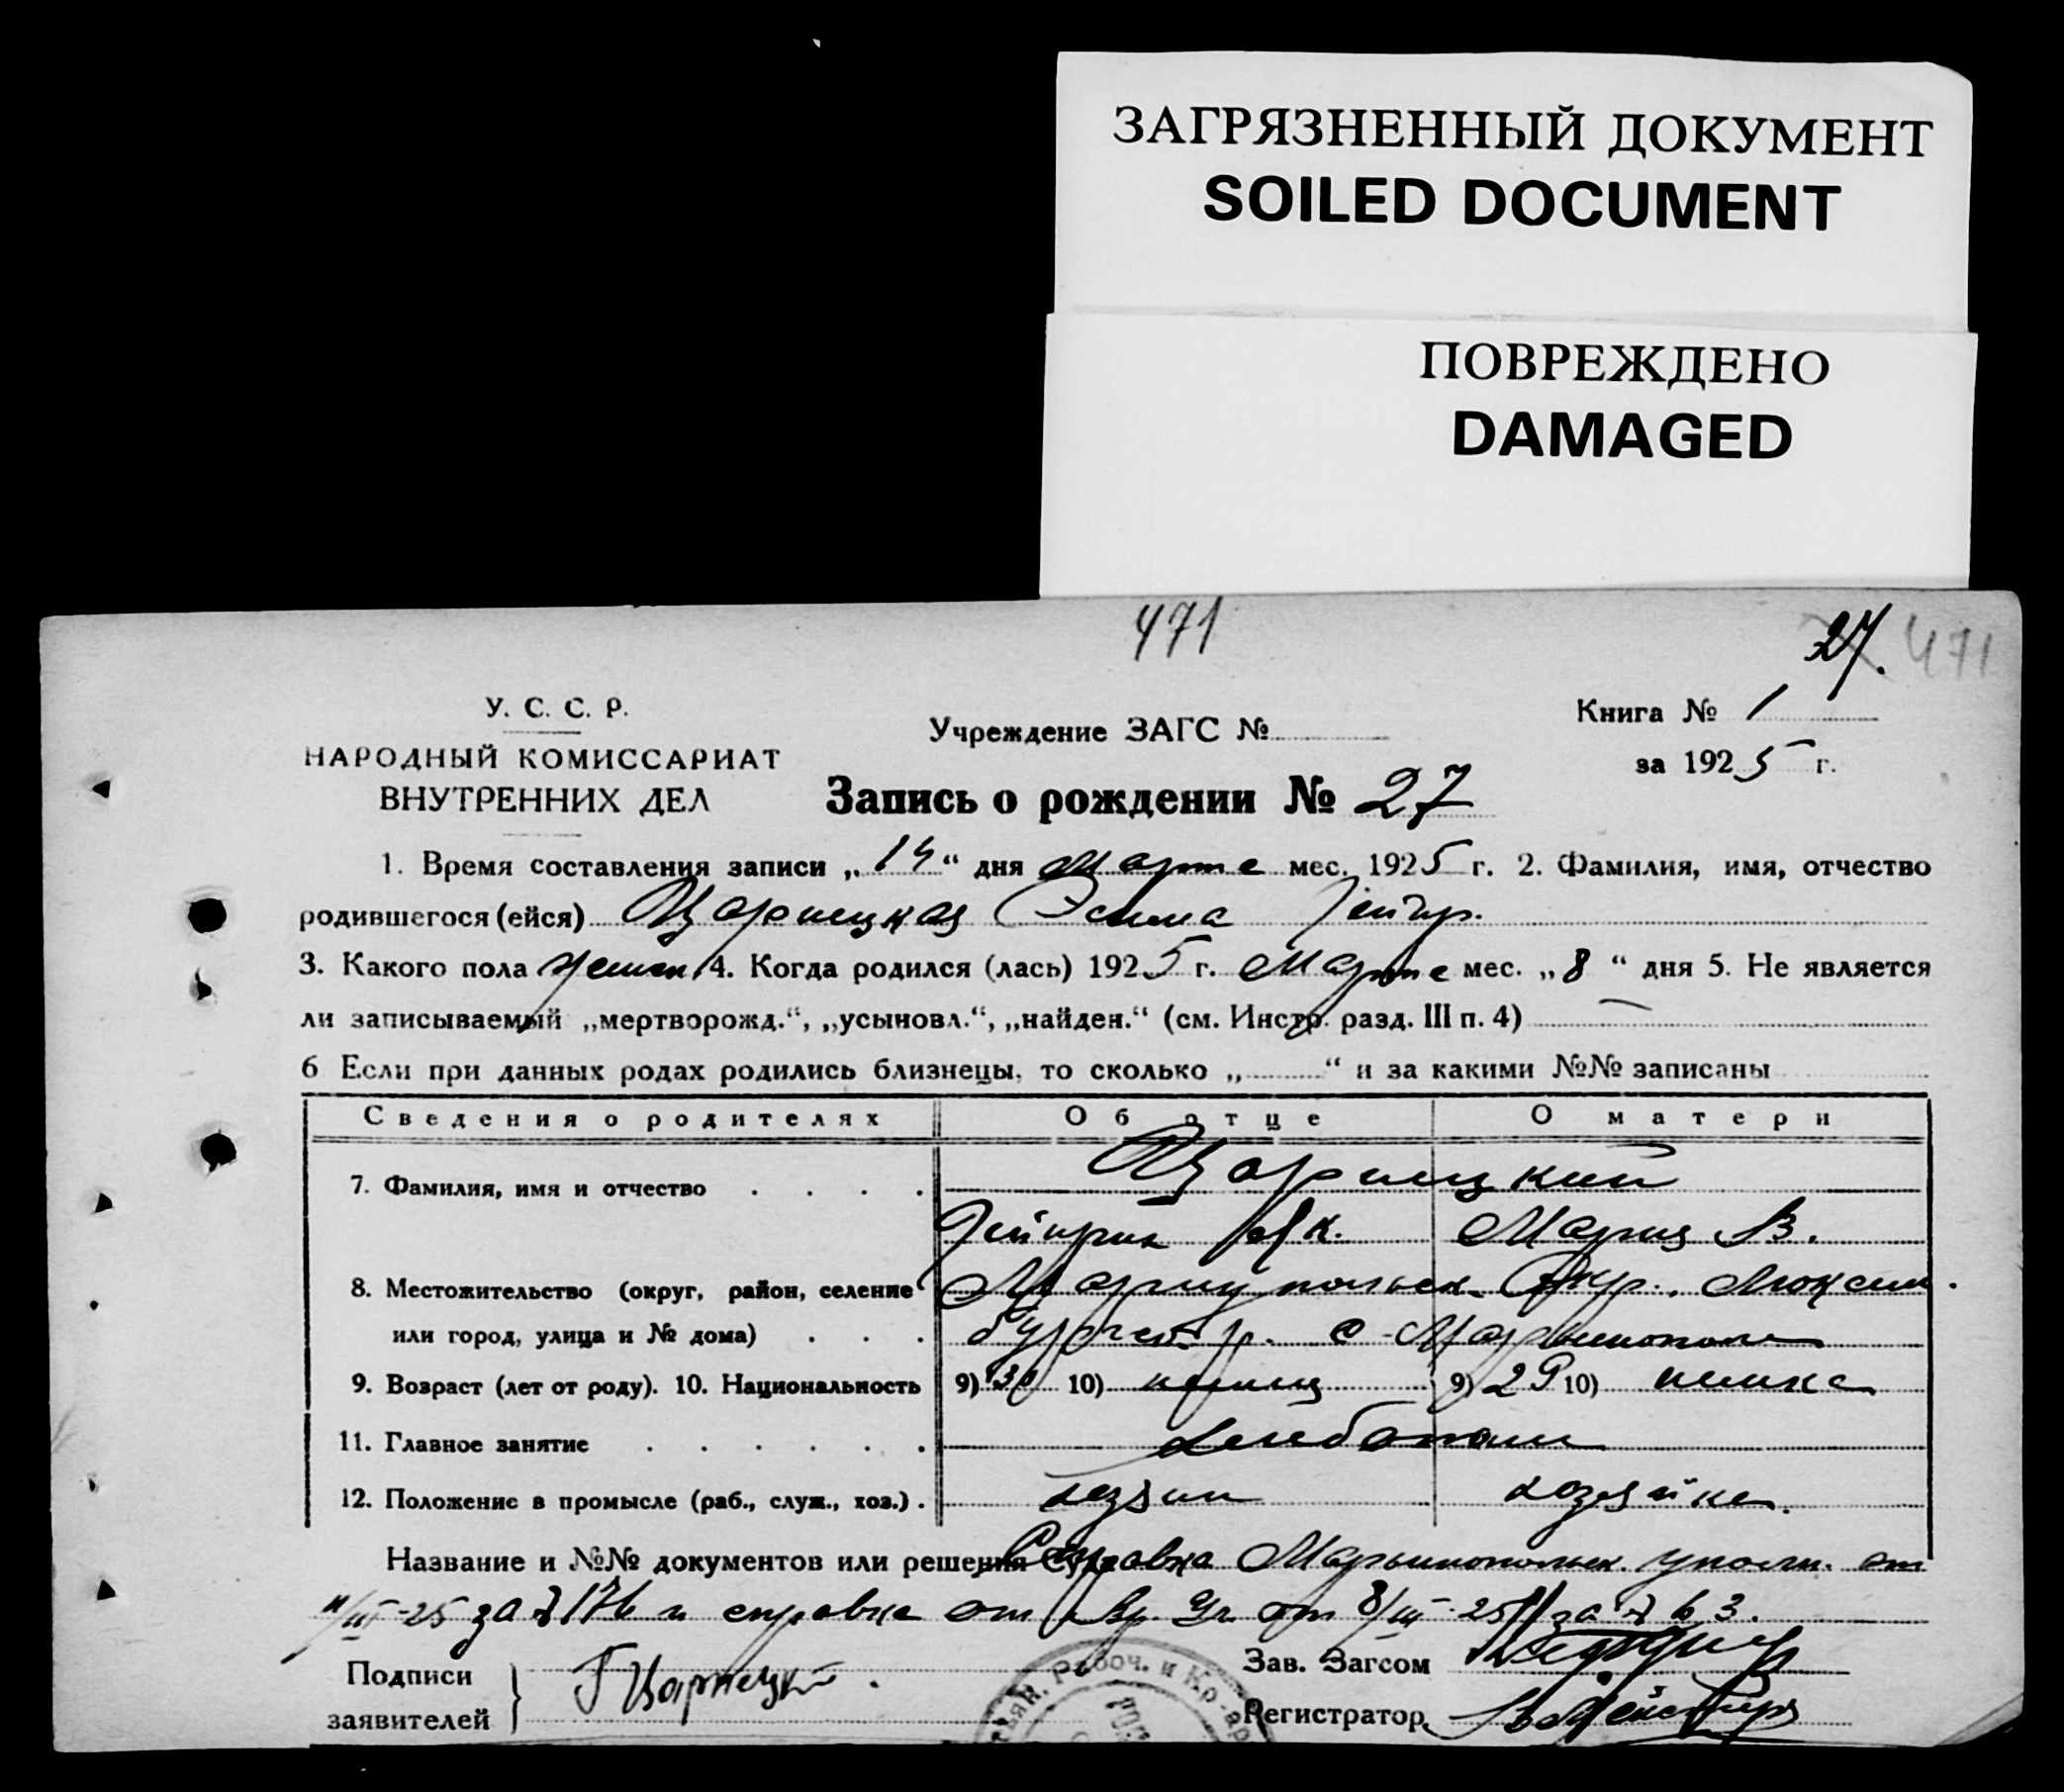 ЗАГРЯЗНЕННЫЙ ДОКУМЕНТ
SOILED DOCUMENT
ПОВРЕЖДЕНО
DAMAGED
471
27. 471
У. С. С. Р.
НАРОДНЫЙ КОМИССАРИАТ
ВНУТРЕННИХ ДЕЛ
Учреждение ЗАГС №
Книга № 1
за 1925 г.
Запись о рождении № 27
1. Время составления записи „14“ дня Марта мес. 1925 г. 2. Фамилия, имя, отчество
родившегося (ейся) Царнецкая
3. Какого пола женск 4. Когда родился (лась) 1925 г. Марта мес. „8“ дня 5. Не является
ли записываемый „мертворожд.“, „усыновл.“, „найден.“ (см. Инстр. разд. III п. 4) —
6 Если при данных родах родились близнецы, то сколько „ “ и за какими №№ записаны
Сведения о родителях Об отце О матери
7. Фамилия, имя и отчество Царнецкий
Гейнрих Мария В.
8. Местожительство (округ, район, селение Мариупольск. Окр. Люксем
или город, улица и № дома) бургск р. с Марьинополь
9. Возраст (лет от роду). 10. Национальность 9) 30 10) немец 9) 29 10) немка
11. Главное занятие Хлебопаш
12. Положение в промысле (раб., служ., хоз.) хозяин хозяйка.
Название и №№ документов или решения Суда Справка Марьинопольск. уполн. от
/III-25 за № 176 и справка от от 8/III-25 за № 63.
Подписи
заявителей
Г Царнецкий.
Зав. Загсом
Регистратор